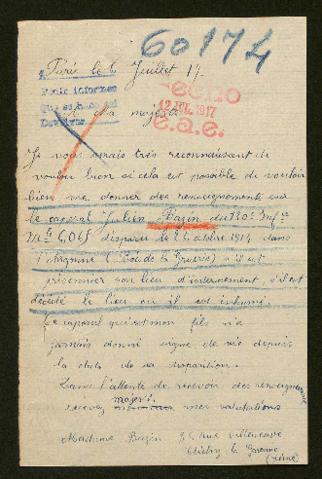 60174
Paris le 6 Juillet 17.
Para informes
Devolver
hecho
12 JUL. 1917
e.a.e.
A sa majesté
Je vous serais très reconnaissant de
vouloir bien si cela est possible de vouloir
bien me donner des renseignements sur
le caporal Julien Bazin du Inf
disparu le octobre 1914 dans
l'Argonne (Bois de la Gruerie) s'il est
prisonnier son lieu d'internement, s'il est
décédé le lieu où il est inhumé.
Ce caporal qui est mon fils n'a
jamais donné signe de vie depuis
la date de sa disparition.
Dans l'attente de recevoir des renseignements
recevez majesté mes salutations
Madame Bazin rue Villeneuve
Clichy la Garenne
(Seine)